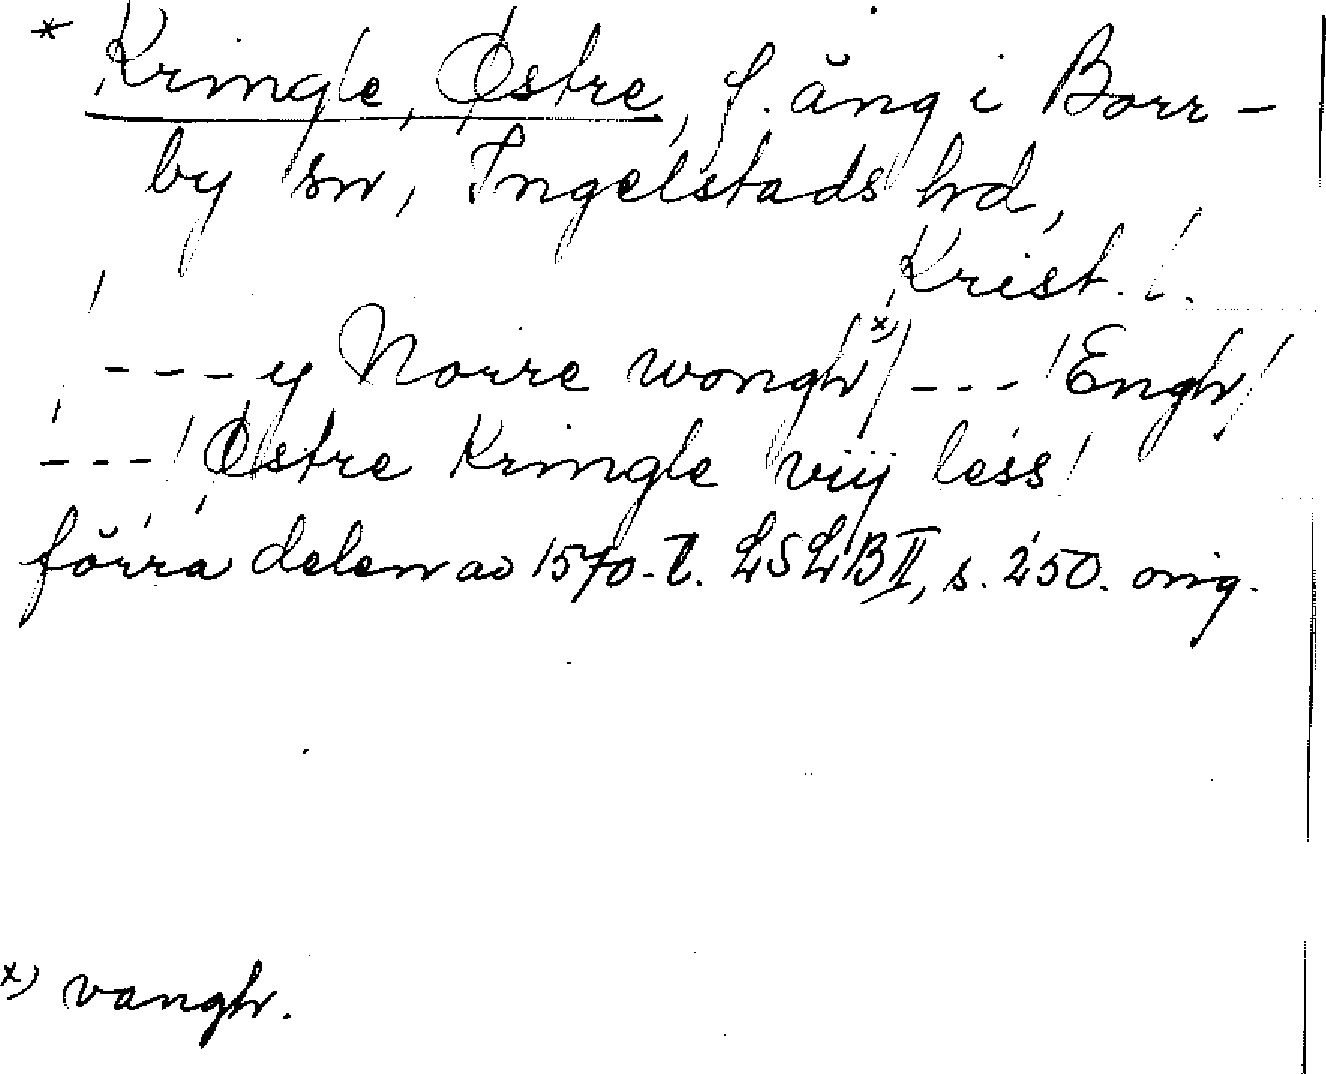 * Kringle, Østre, f. äng i Borr-
by sn, Ingelstads hd,
Krist. l.
--- y Norre wongh x) --- / Engh /
--- / Østre Kringle viij less /
förra delen av 1570-t. LSLB II, s. 250. orig.
x) vangh.